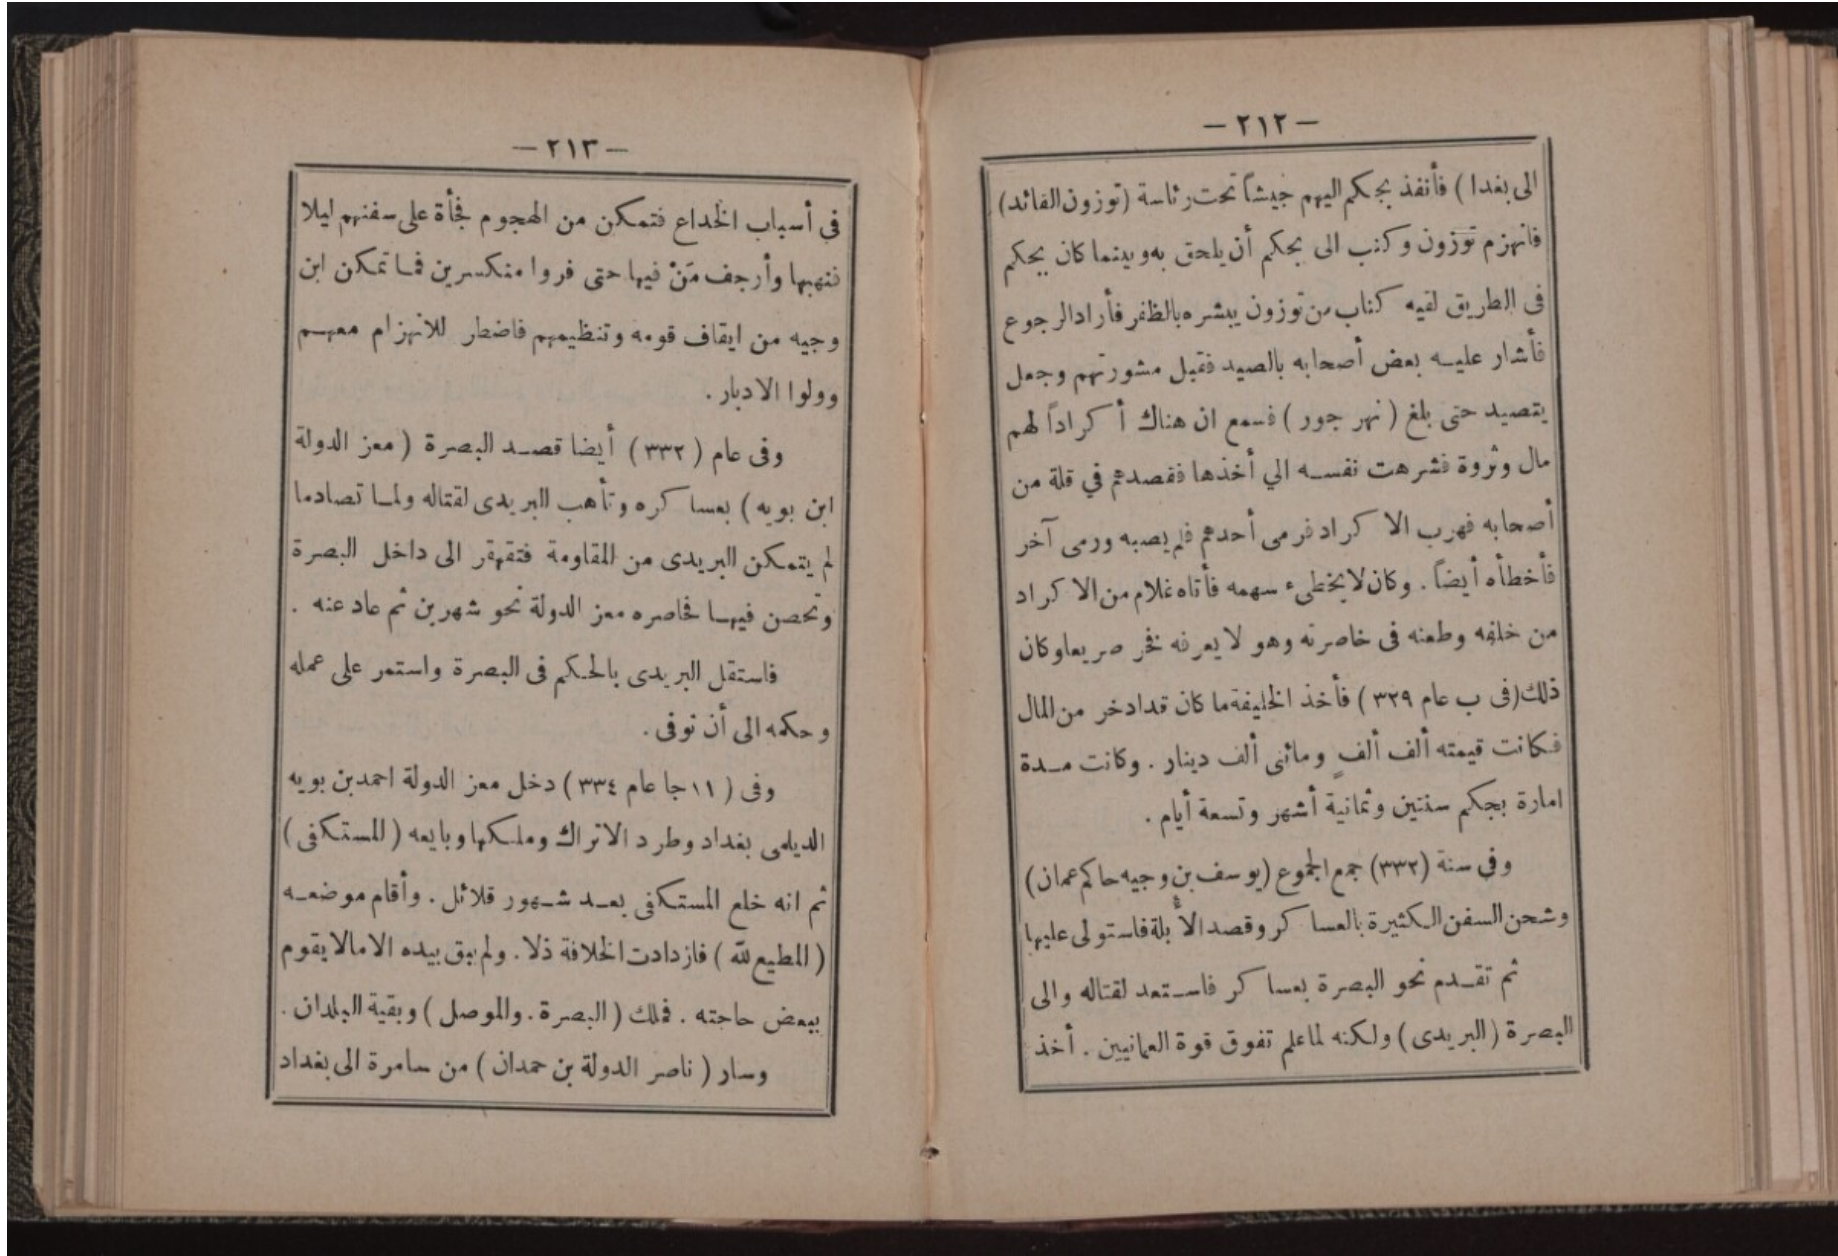 — ٢١٢ —
الى بغدا ) فأنفذ بجكم اليهم جيشاً تحت رئاسة (توزون القائد)
فانهزم توزون وكتب الى بجكم أن يلحق به وبينما كان بجكم
فى الطريق لقيه كتاب من توزون يبشره بالظفر فأراد الرجوع
فأشار عليه بعض أصحابه بالصيد فقبل مشورتهم وجعل
يتصيد حتى بلغ ( نهر جور ) فسمع ان هناك أكراداً لهم
مال وثروة فشرهت نفسه الي أخذها فقصدهم في قلة من
أصحابه فهرب الاكراد فرمى أحدهم فلم يصبه ورمى آخر
فأخطأه أيضاً . وكان لا يخطىء سهمه فأتاه غلام من الاكراد
من خلفه وطعنه فى خاصرته وهو لا يعرفه فخر صريعا وكان
ذلك (فى ب عام ٣٢٩ ) فأخذ الخليفة ما كان قد ادخر من المال
فكانت قيمته ألف ألفٍ ومائتى ألف دينار . وكانت مدة
امارة بجكم سنتين وثمانية أشهر وتسعة أيام .
وفي سنة (٣٣٢) جمع الجموع (يوسف بن وجيه حاكم عمان)
وشحن السفن الكثيرة بالعساكر وقصد الأبلة فاستولى عليها
ثم تقدم نحو البصرة بعساكر فاستعد لقتاله والى
البصرة ( البريدى ) ولكنه لما علم تفوق قوة العمانيين . أخذ
— ٢١٣ —
في أسباب الخداع فتمكن من الهجوم فجأة على سفنهم ليلا
فنهبها وأرجف مَنْ فيها حتى فروا منكسرين فما تمكن ابن
وجيه من ايقاف قومه وتنظيمهم فاضطر للانهزام معهم
وولوا الادبار .
وفى عام ( ٣٣٢ ) أيضا قصد البصرة ( معز الدولة
ابن بويه ) بعساكره وتأهب البريدى لقتاله ولما تصادما
لم يتمكن البريدى من المقاومة فتقهقر الى داخل البصرة
وتحصن فيها فحاصره معز الدولة نحو شهرين ثم عاد عنه .
فاستقل البريدى بالحكم فى البصرة واستمر على عمله
وحكمه الى أن توفى .
وفى ( ١١ جا عام ٣٣٤ ) دخل معز الدولة احمد بن بويه
الديلمى بغداد وطرد الاتراك وملكها وبايعه ( المستكفى )
ثم انه خلع المستكفى بعد شهور قلائل . وأقام موضعه
( المطيع لله ) فازدادت الخلافة ذلا . ولم يبق بيده الا مالا يقوم
ببعض حاجته . فملك ( البصرة . والموصل ) وبقية البلدان .
وسار ( ناصر الدولة بن حمدان ) من سامرة الى بغداد